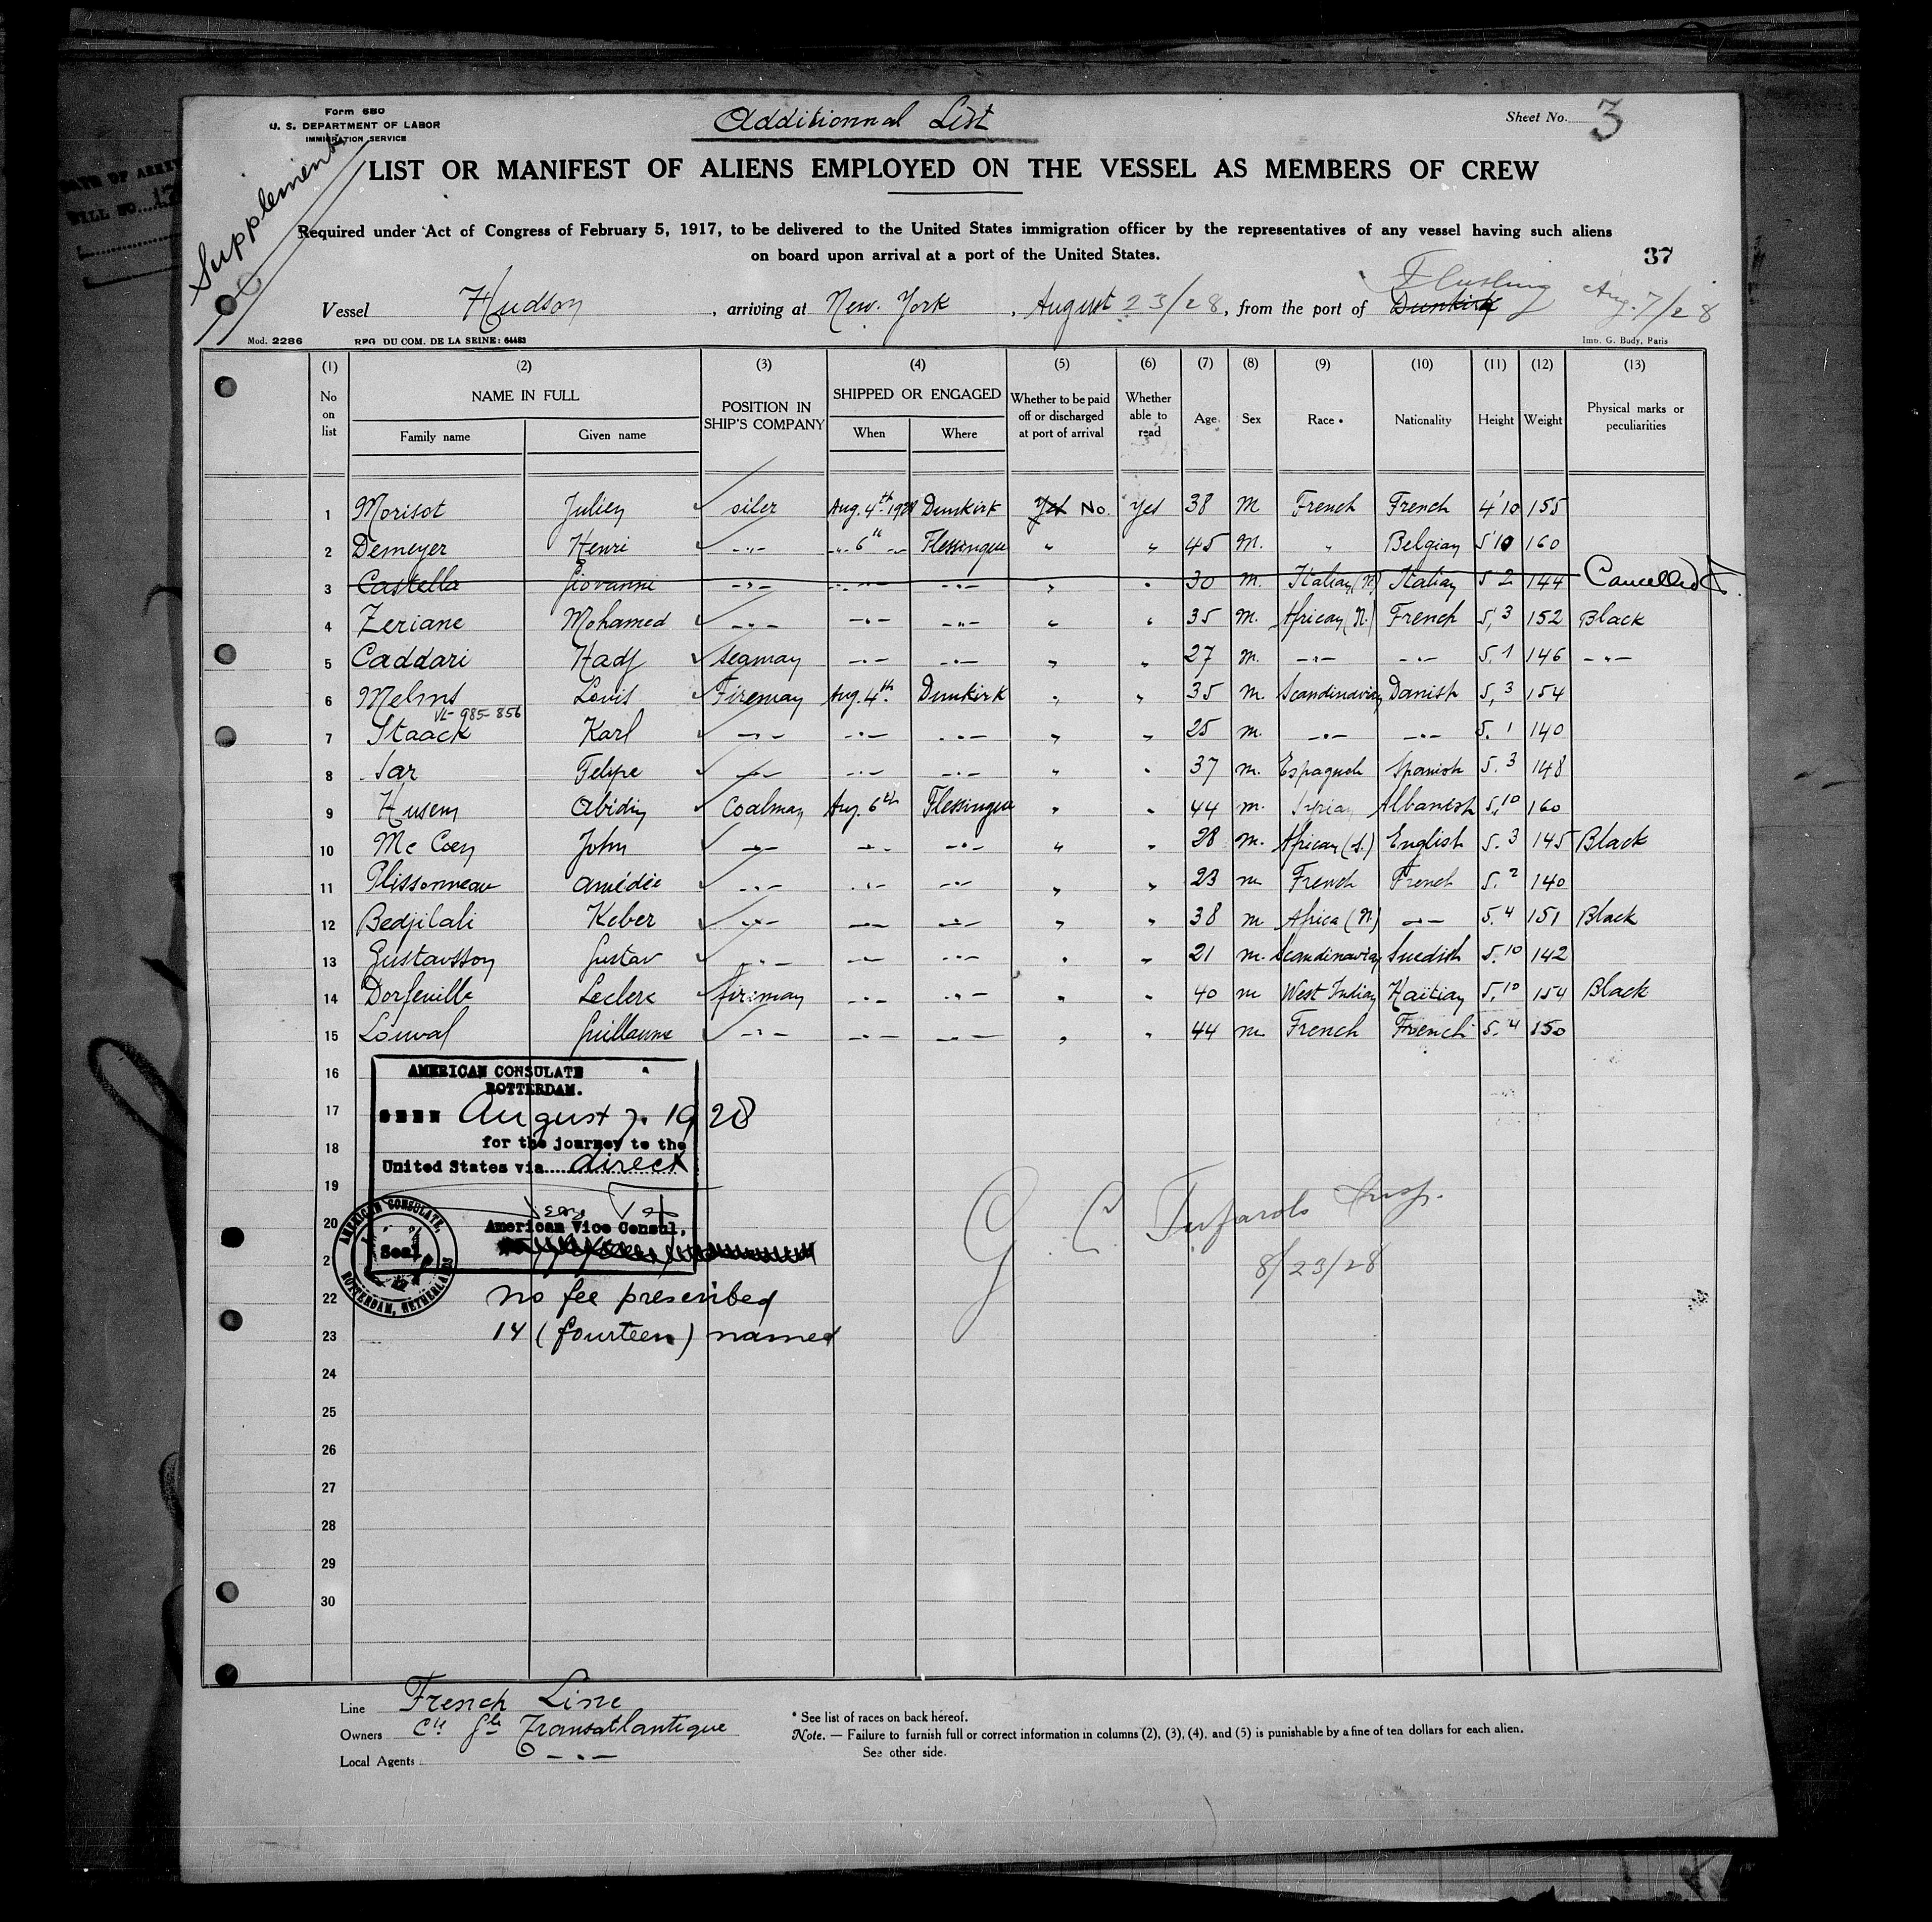 Form 680
U. S. DEPARTMENT OF LABOR
IMMIGRATION SERVICE
Additionnal List
Sheet No. 3
Supplement
LIST OR MANIFEST OF ALIENS EMPLOYED ON THE VESSEL AS MEMBERS OF CREW
Required under Act of Congress of February 5, 1917, to be delivered to the United States immigration officer by the representatives of any vessel having such aliens
on board upon arrival at a port of the United States.
37
Flushing Aug. 7/28
Vessel Hudson, arriving at New. York, August 23/28, from the port of Dunkirk
Mod. 2286 REG. DU COM. DE LA SEINE: 64483 Imp. G. Budy, Paris
(1) (2) (3) (4) (5) (6) (7) (8) (9) (10) (11) (12) (13)
No on list NAME IN FULL Family name Given name POSITION IN SHIP'S COMPANY SHIPPED OR ENGAGED When Where Whether to be paid off or discharged at port of arrival Whether able to read Age Sex Race * Nationality Height Weight Physical marks or peculiarities
1 Morisot Julien siler Aug. 4th 1928 Dunkirk Yes No. Yes 38 M French French 4'10 155
2 Demeyer Henri -"- -"- 6th -"- Flessingue " " 45 M. " Belgian 5'10 160
3 Castella Giovanni -"- -"- -"- " " 30 m. Italian (N.) Italian 5 2 144 Cancelled
4 Zeriane Mohamed -"- -"- -"- " " 35 m. African (N.) French 5,3 152 Black
5 Caddari Hadj seaman -"- -"- " " 27 m. -"- -"- 5.1 146 -"-
6 Melms Louis Fireman Aug. 4th Dunkirk " " 35 m. Scandinavian Danish 5,3 154
VL-985-856
7 Staack Karl -"- -"- -"- " " 25 m. -"- -"- 5.1 140
8 Sar Felipe -"- -"- -"- " " 37 m. Espagnol Spanish 5.3 148
9 Husem Abidin Coalman Aug. 6th Flessingue " " 44 m. Syrian Albanish 5.10 160
10 Mc Coen John -"- -"- -"- " " 28 m. African (s.) English 5.3 145 Black
11 Plissonneau Amédée -"- -"- -"- " " 23 m French French 5.2 140
12 Bedjilali Keber -"- -"- -"- " " 38 m Africa (N) -"- 5.4 151 Black
13 Gustavsson Gustav -"- -"- -"- " " 21 m. Scandinavian Suedish 5.10 142
14 Dorfeuille Leclerc fireman -"- -"- " " 40 m West Indian Haïtian 5.10 154 Black
15 Louval Guillaume -"- -"- -"- " " 44 m. French French 5.4 150
16
AMERICAN CONSULATE
ROTTERDAM.
17
SEEN August 7. 1928
18
for the journey to the
United States via direct
19
20
American Vice Consul,
AMERICAN CONSULATE, ROTTERDAM, NETHERLANDS
Seal
G. C. Insp.
8/23/28
21
22 no fee prescribed
23 14 (fourteen) named
24
25
26
27
28
29
30
Line French Line
Owners Cie Gle Transatlantique
Local Agents -"-
* See list of races on back hereof.
Note. — Failure to furnish full or correct information in columns (2), (3), (4), and (5) is punishable by a fine of ten dollars for each alien.
See other side.